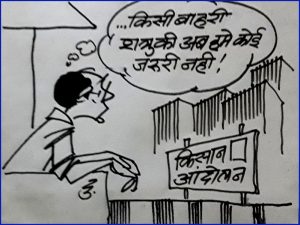 ...किसी बाहरी
शत्रुकी अब हमे कोई
जरुरी नही!
किसान
आंदोलन